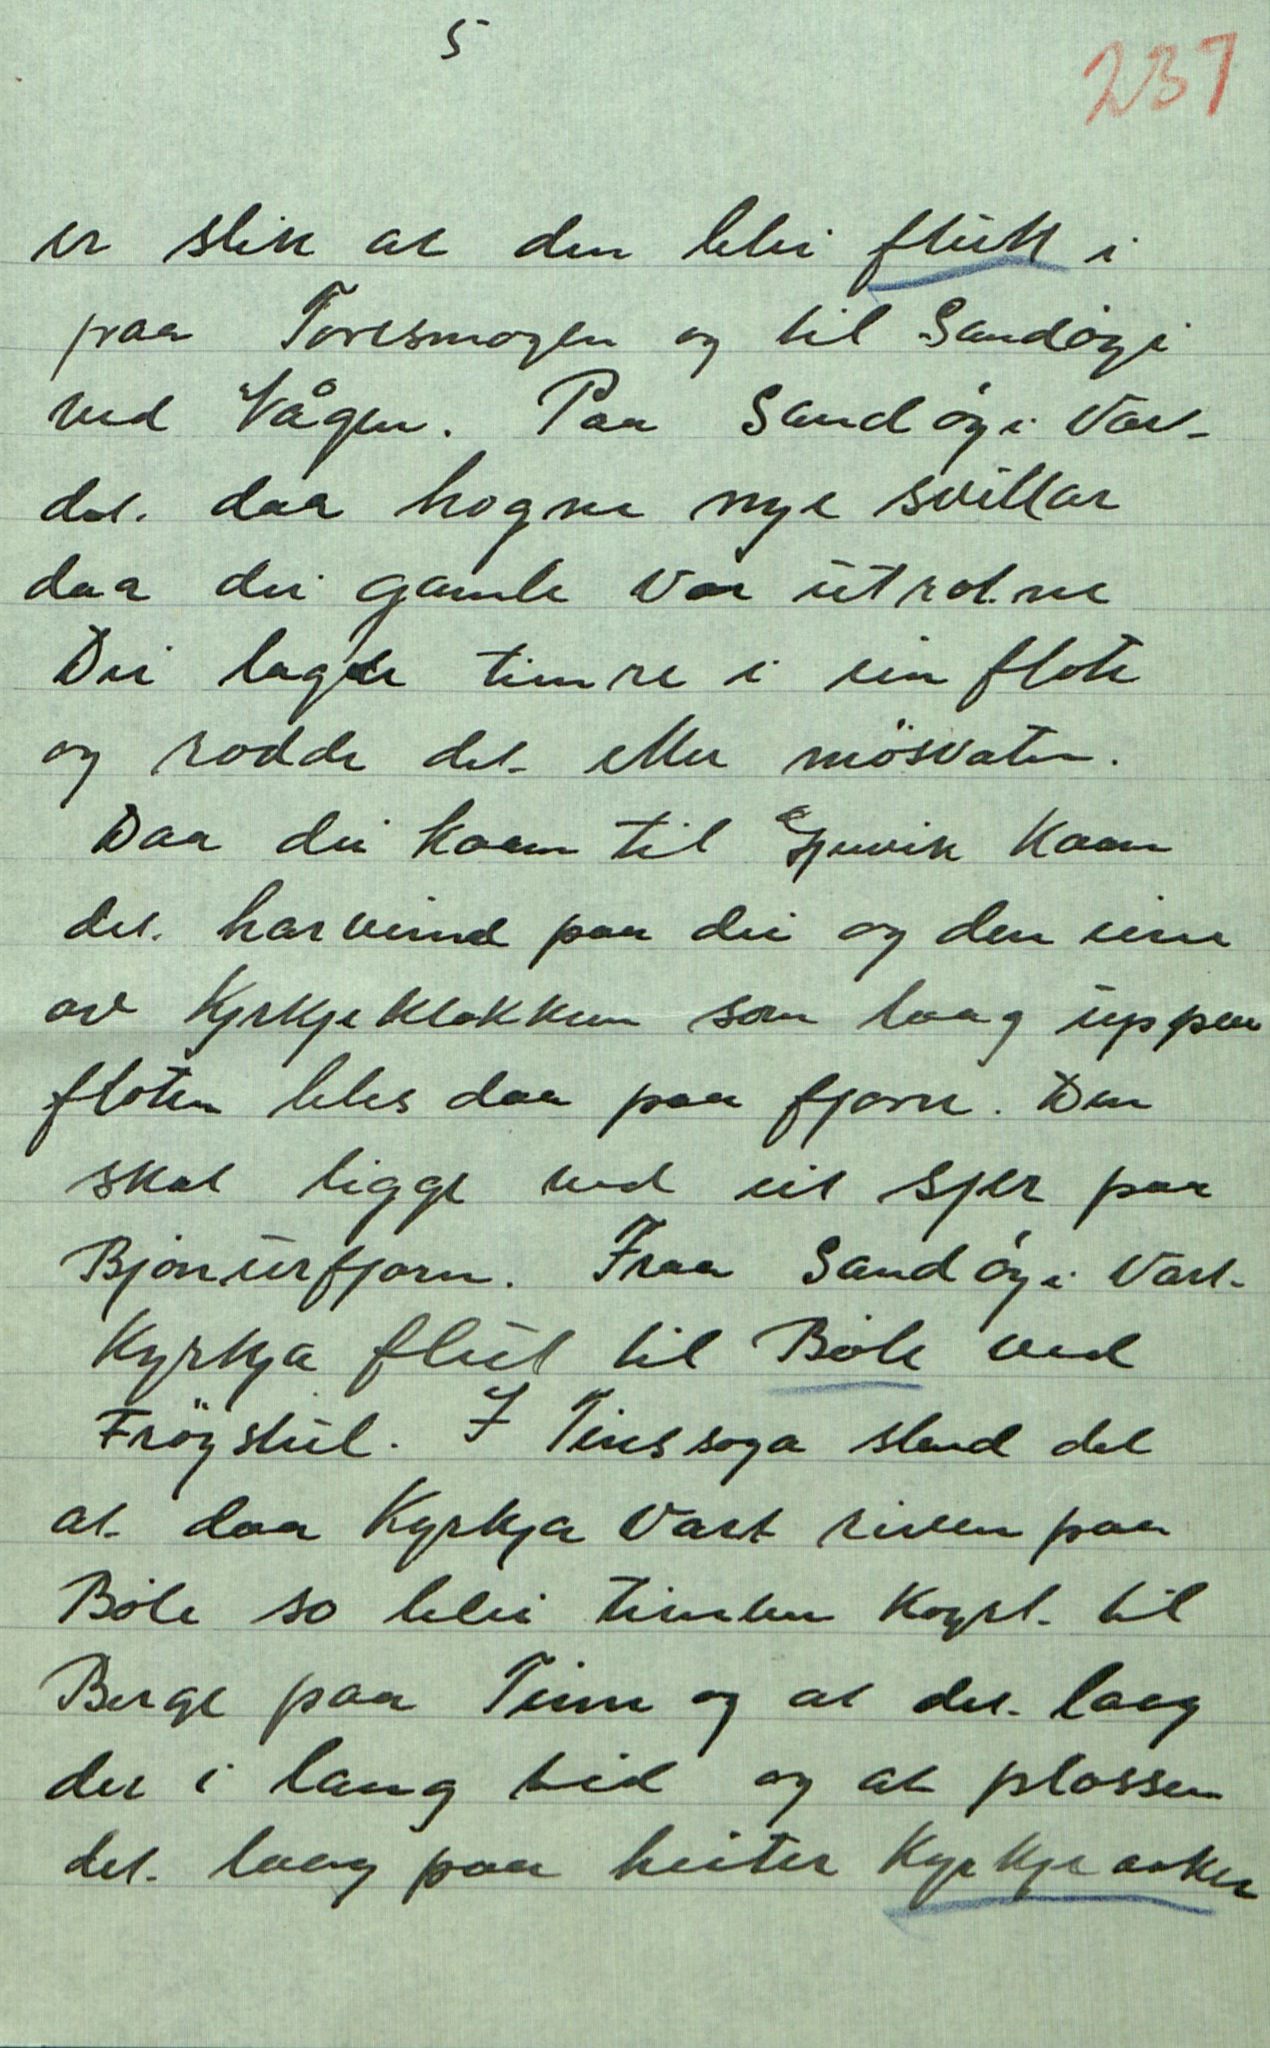 5
237
er slik at den blei flutt i
fraa Toresmogen og til Sandøyi
ved Vågen. Paa Sandøyi vart
det. daa hogne nye svillar
daa dei gamle var utrotne
Dei lagde timre i ein flote
og rodde det etter møsvaten.
Daa dei kaam til Gjuvik kaam
det. harvind paa dei og den eine
av Kyrkjeklokkun som laag uppaa
floten bles daa paa fjorn. Den
skal ligge ved eit sjer paa
Bjønurfjorn. Fraa Sandøyi vart
Kyrkja flut til Bøle ved
Frøystul. I Tinssoga stend det
at daa Kyrkja vart riven paa
Bøle so blei timber køyrt til
Berge paa Tinn og at det. laag
der i lang tid og at plassen
det. laag paa heiter Kyrkjeaaker